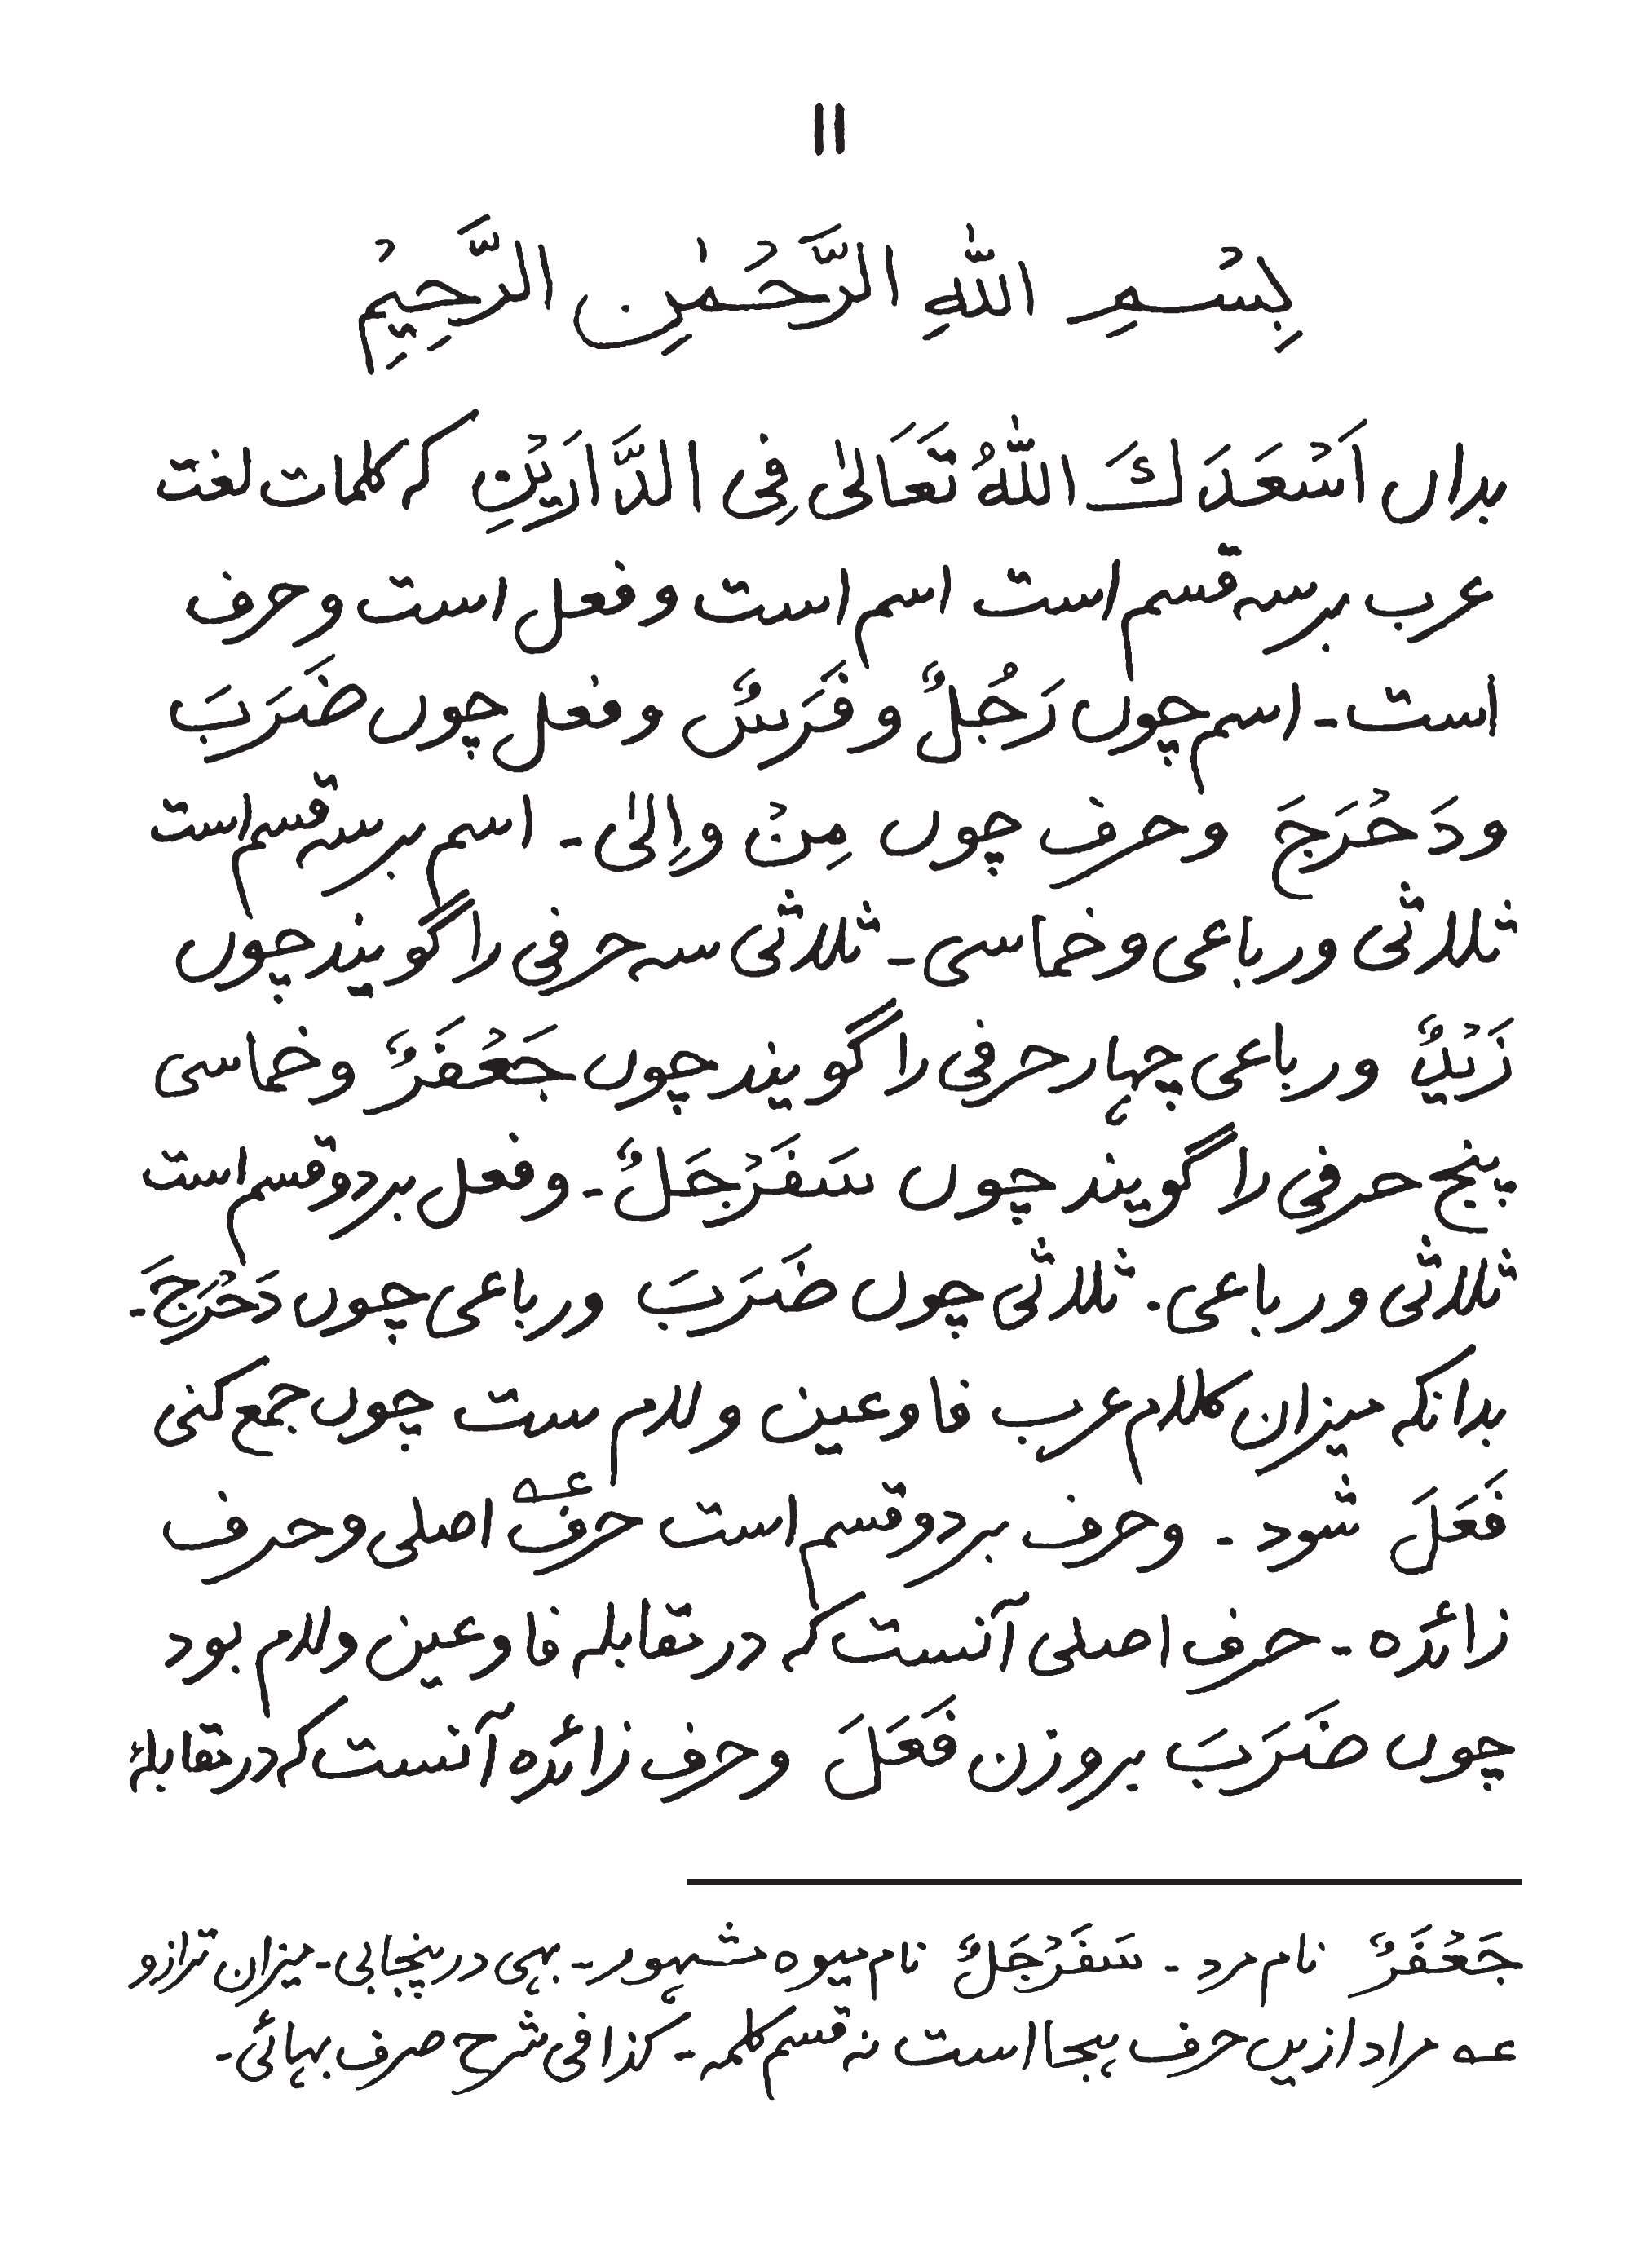 ۱۱
بِسْمِ اللّٰهِ الرَّحْمٰنِ الرَّحِيْمِ
بداں اَسْعَدَكَ اللّٰهُ تَعَالٰى فِى الدَّارَيْنِ کہ کلمات لغت
عرب برسہ قسم است اسم است و فعل است و حرف
است ۔ اسم چوں رَجُلٌ و فَرَسٌ و فعل چوں ضَرَبَ
و دَحْرَجَ و حرف چوں مِنْ و اِلٰى ۔ اسم برسہ قسم است
ثلاثی و رباعی و خماسی ۔ ثلاثی سہ حرفی را گویند چوں
زَیْدٌ و رباعی چہار حرفی را گویند چوں جَعْفَرٌ و خماسی
پنج حرفی را گویند چوں سَفَرْجَلٌ ۔ و فعل بر دو قسم است
ثلاثی و رباعی . ثلاثی چوں ضَرَبَ و رباعی چوں دَحْرَجَ ۔
بدانکہ میزان کلام عرب فا و عین و لام ست چوں جمع کنی
فَعَلَ شود ۔ و حرف بر دو قسم است حرف عہ اصلی و حرف
زائدہ ۔ حرف اصلی آنست کہ در مقابلہ فا و عین و لام بود
چوں ضَرَبَ بر وزن فَعَلَ و حرف زائدہ آنست کہ در مقابلۂ
جَعْفَرٌ نام مرد ۔ سَفَرْجَلٌ نام میوہ مشہور ۔ بہی در پنجابی ۔ میزان ترازو
عہ مراد ازیں حرف ہجا است نہ قسم کلمہ ۔ کذا فی شرح صرف بہائی ۔